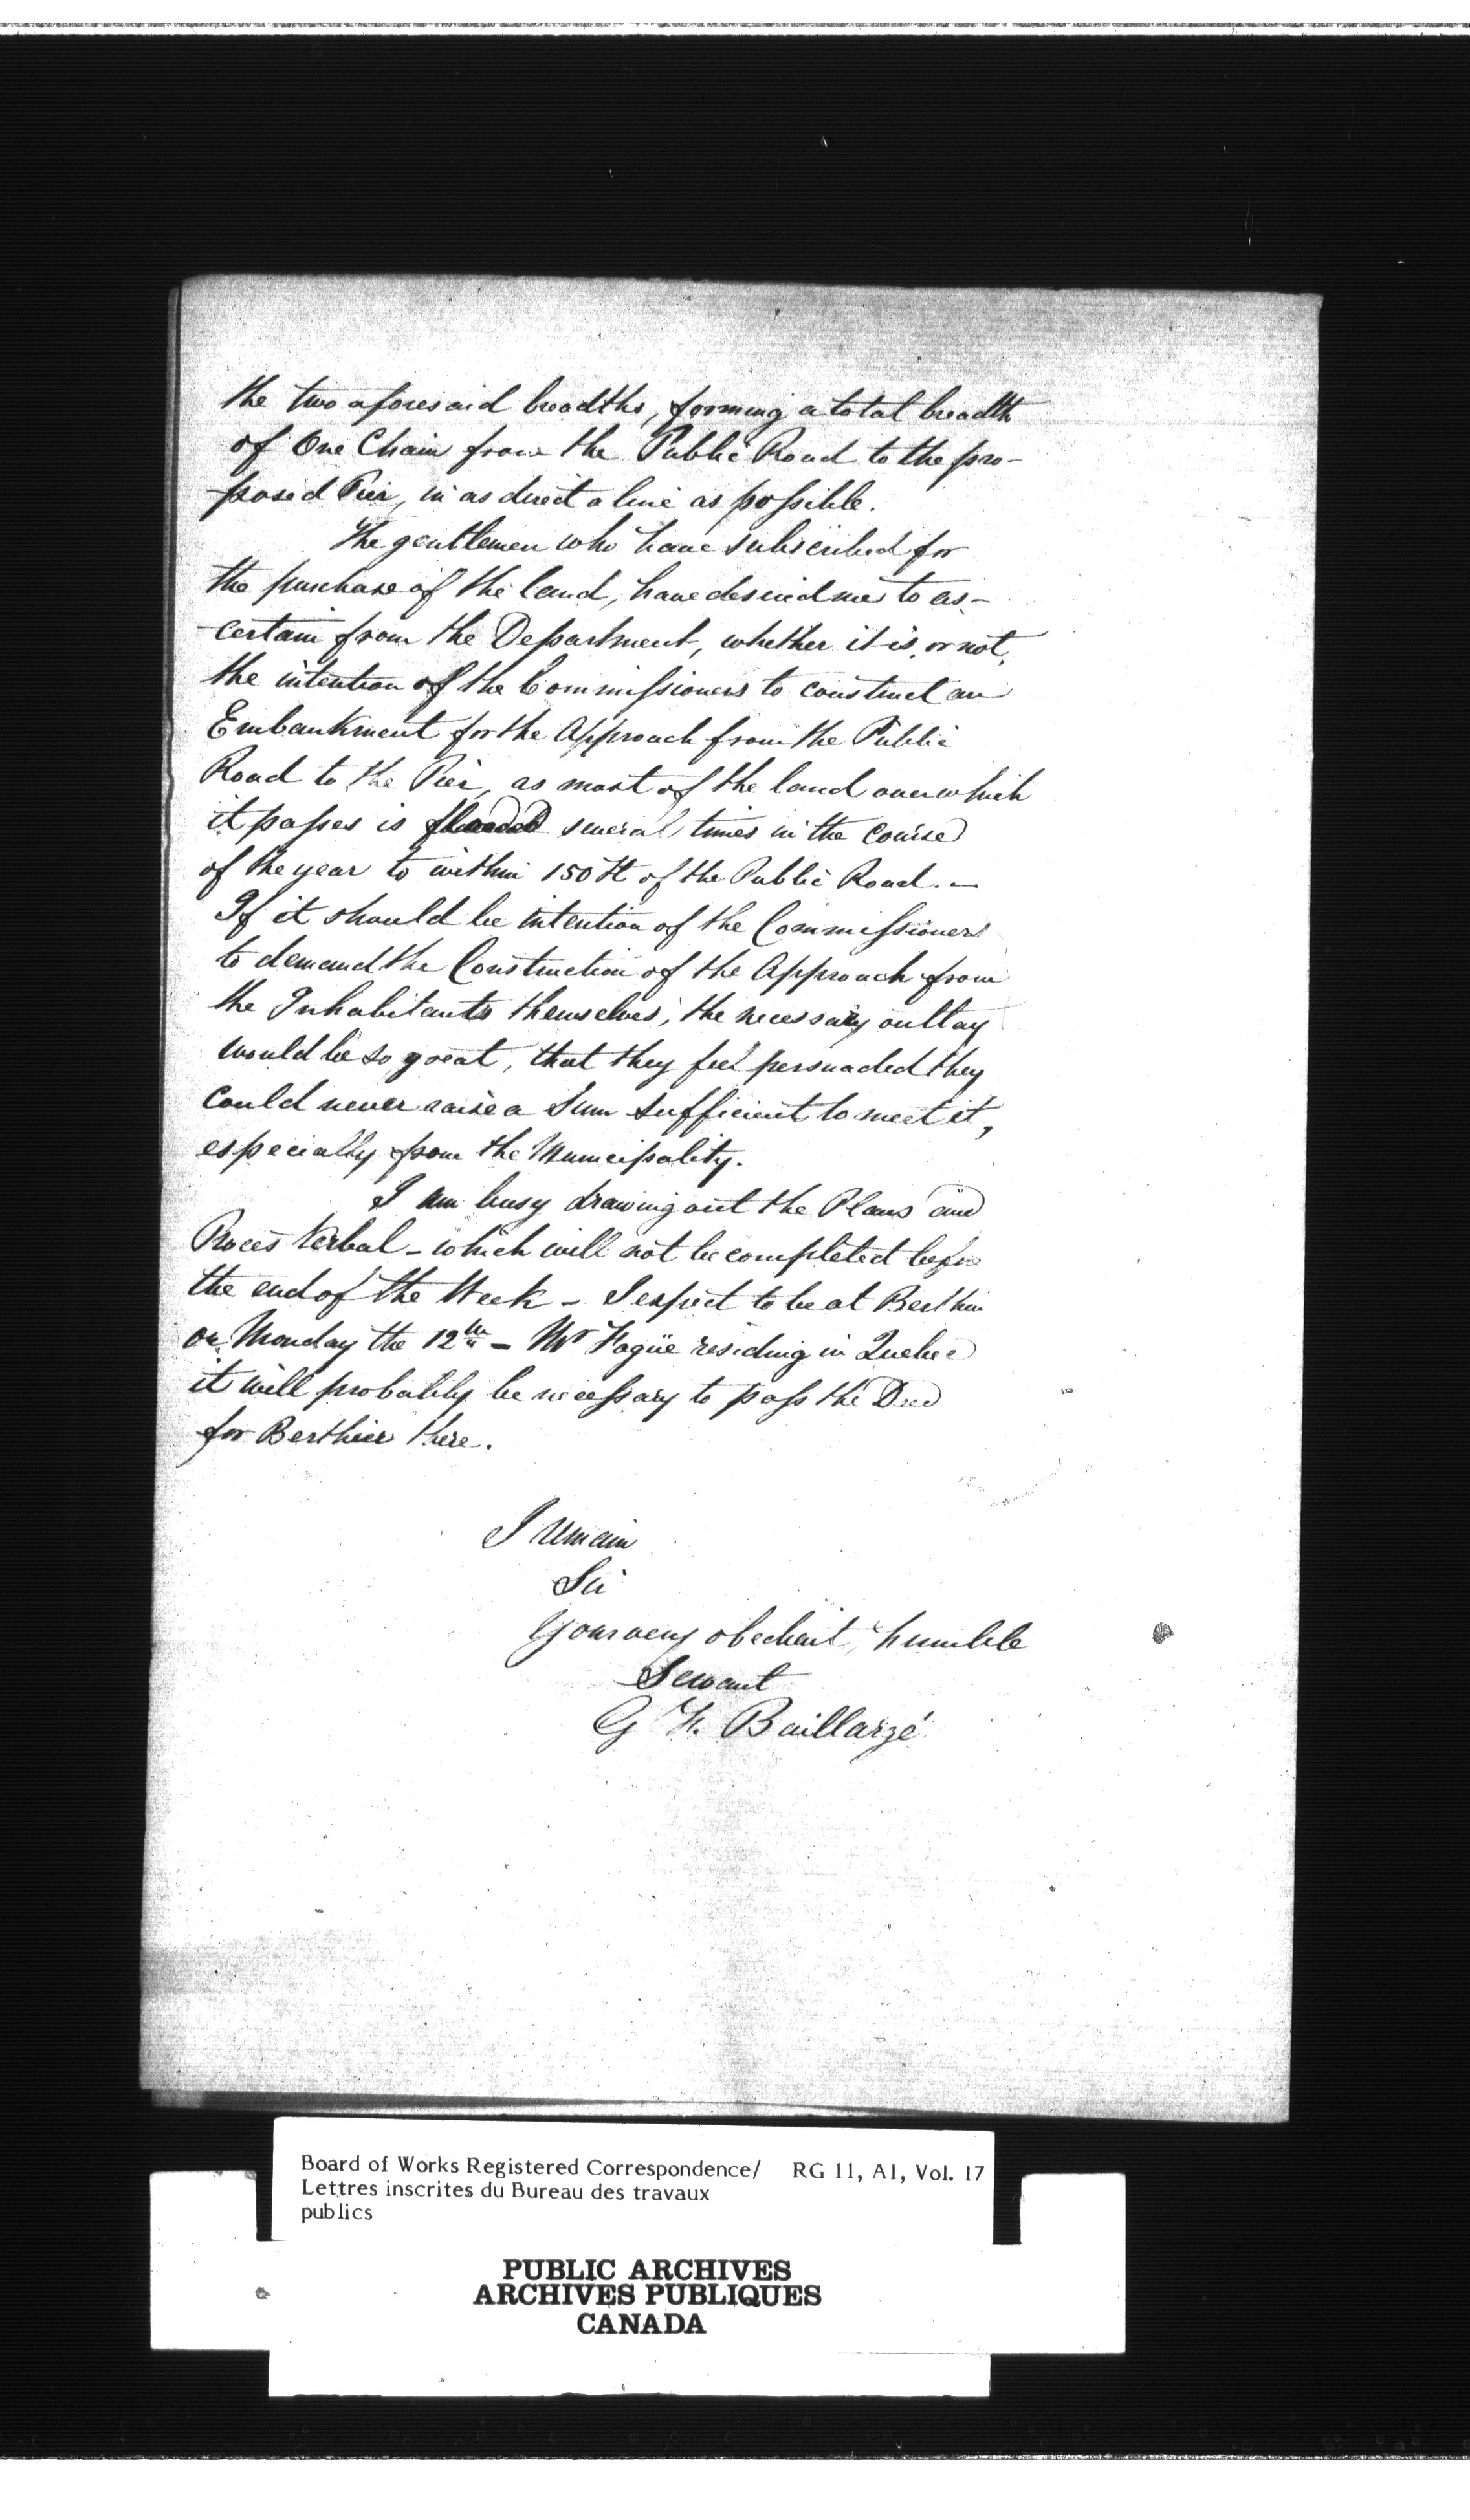 the two aforesaid breadths, forming a total breadth
of One Chain from the Public Road to the pro-
posed Pier, in as direct a line as possible.
The gentlemen who have subscribed for
the purchase of the land, have desired me to as-
certain from the Department, whether it is, or not,
the intention of the Commissioners to construct an
Embankment for the Approach from the Public
Road to the Pier, as most of the land over which
it passes is flooded several times in the course
of the year to within 150 ft of the Public Road. —
If it should be intention of the Commissioners
to demand the Construction of the Approach from
the Inhabitants themselves, the necessary outlay
would be so great, that they feel persuaded they
could never raise a Sum sufficient to meet it,
especially from the Municipality.
I am busy drawing out the Plans and
Procès Verbal – which will not be completed before
the end of the Week – I expect to be at Berthier
on Monday the 12th – Mr Fagüe residing in Quebec
it will probably be necessary to pass the Deed
for Berthier there.
I remain
Sir
Your very obedient, humble
Servant
G F. Baillargé
Board of Works Registered Correspondence/ RG 11, A1, Vol. 17
Lettres inscrites du Bureau des travaux
publics
PUBLIC ARCHIVES
ARCHIVES PUBLIQUES
CANADA